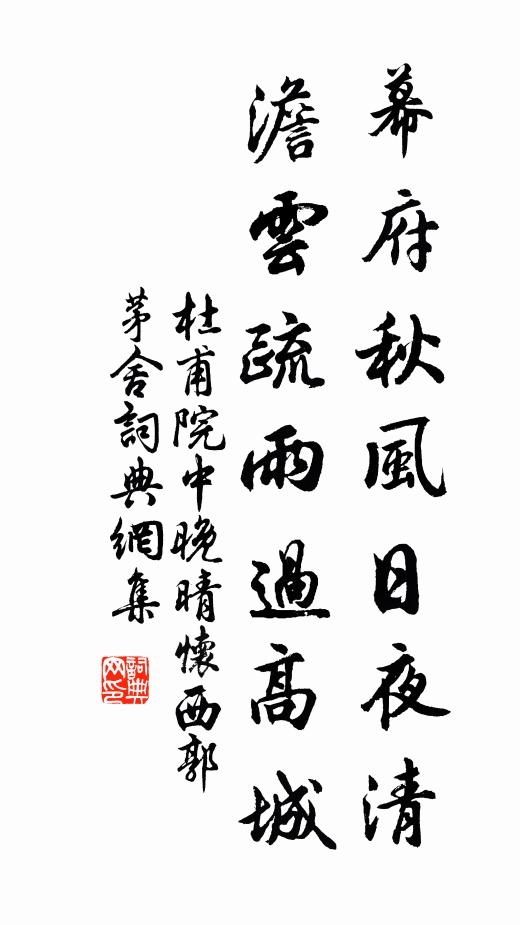 幕府秋風日夜清
澹雲疏雨過高城
杜甫院中晚晴懷西郭
茅舍詞典網集
詞典网印